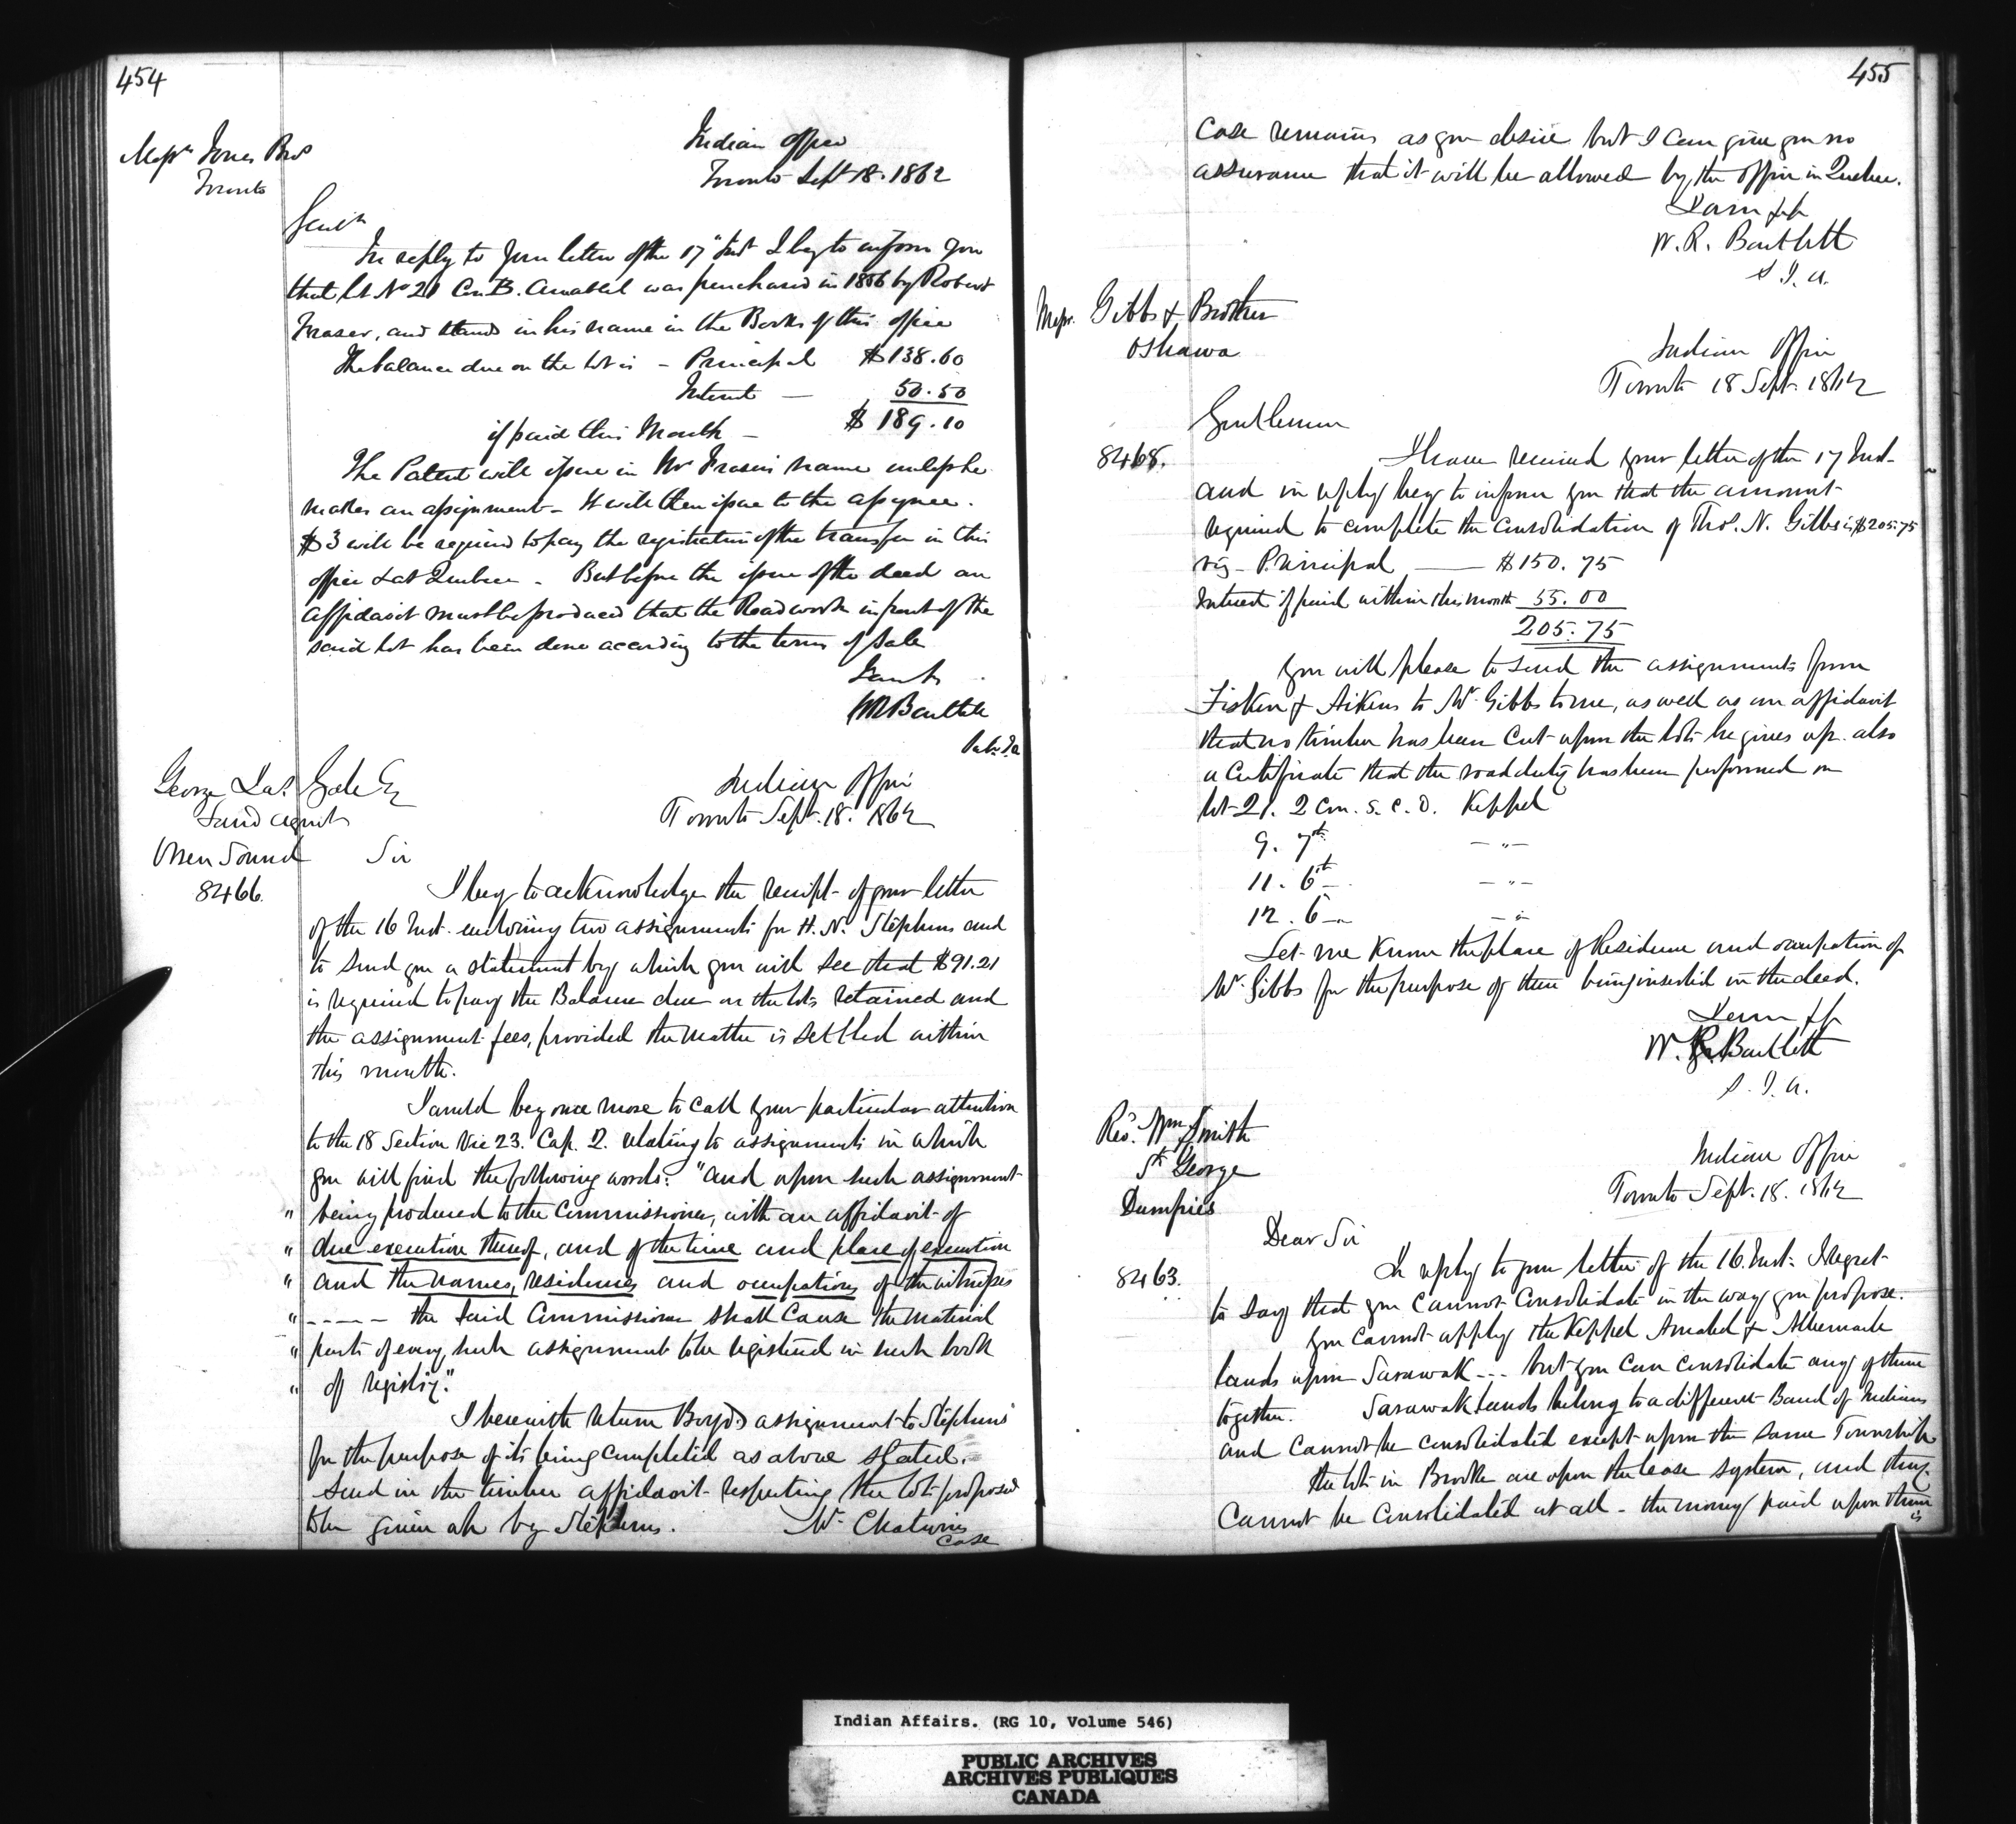 454
Messrs Jones Bros
Toronto
Indian Office
Toronto Sept 18. 1862
Gentn
In reply to your letter of the 17" Inst I beg to inform you
that Lt No 21 Con B. Amabel was purchased in 1856 by Robert
Fraser, and stands in his name in the Books of this office
The balance due on the lot is - Principal $138.60
Interest — 50.50
if paid this Month — $189.10
The Patent will issue in Mr Frasers name unless he
makes an assignment - It will then issue to the assignee.
$3 will be required to pay the registration of the transfer in this
office & at Quebec - But before the issue of the deed an
affidavit must be produced that the Road work in front of the
said lot has been done according to the terms of Sale
W R Bartlett
George Jas. Gale Esq
Land Agent
Owen Sound
8466.
Indian Office
Toronto Sept. 18. 1862
Sir
I beg to acknowledge the receipt of your letter
of the 16 Inst. enclosing two assignments for H. N. Stephens and
to send you a statement by which you will see that $91.21
is required to pay the Balance due on the lots retained and
the assignment fees, provided the matter is settled within
this month.
I would beg once more to call your particular attention
to the 18 Section Vic 23. Cap. 2. relating to assignments in which
you will find the following words: "and upon such assignment
" being produced to the Commissioner, with an affidavit of
" due execution thereof, and of the time and place of execution
" and the names, residences and occupations of the witnesses
" - - - - - the said Commissioner shall cause the material
" parts of every such assignment to be registered in such book
" of registry."
I herewith return Boyd's assignment to Stephens
for the purpose of its being completed as above stated.
Send in the timber affidavit respecting the lots proposed
to be given up by Stephens. Mr. Chatwins
case
455
Case remains as you desire but I can give you no
assurance that it will be allowed by the office in Quebec.
I am &c
W. R. Bartlett
S. I. A.
Messr. Gibbs & Brother
Oshawa
Indian Office
Toronto 18 Sept. 1862
Gentlemen
8468.
I have received your letter of the 17 Inst-
and in reply beg to inform you that the amount
required to complete the consolidation of Thos. N. Gibbs is $205.75
viz - Principal —— $150.75
Interest if paid within this month 55.00
205.75
You will please to send the assignments from
Fisken & Aikens to Mr. Gibbs to me, as well as an affidavit
that no timber has been cut upon the lots he gives up. also
a Certificate that the road duty has been performed on
lot 21. 2 Con. S. C. D. Keppel
9. 7th — " —
11. 6th — " —
12. 6 — " —
Let me know the place of Residence and occupation of
Mr. Gibbs for the purpose of their being inserted in the deed.
I am &c
W. R. Bartlett
S. I. A.
Rev. Wm Smith
St George
Dumfries
Indian Office
Toronto Sept. 18. 1862
Dear Sir
8463.
In reply to your letter of the 16. Inst. I regret
to say that you cannot Consolidate in the way you propose.
You cannot apply the Keppel Amabel & Albemarle
lands upon Sarawak - - - but you can consolidate any of them
together. Sarawak lands belong to a different Band of Indians
and cannot be consolidated except upon the same Township
the lots in Brooke are upon the lease system, and they
cannot be consolidated at all - the money paid upon them
is
Indian Affairs. (RG 10, Volume 546)
PUBLIC ARCHIVES
ARCHIVES PUBLIQUES
CANADA